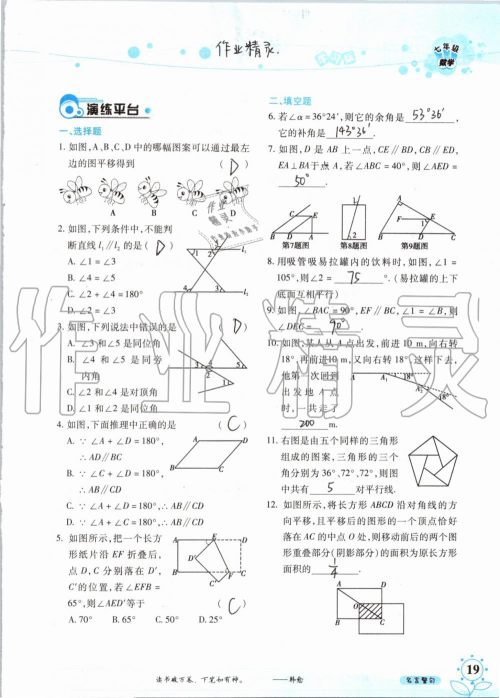 作业精灵.
七年级
数学
演练平台
一、选择题
1. 如图,A、B、C、D 中的哪幅图案可以通过最左
边的图平移得到 ( D )
A B C D
2. 如图,下列条件中,不能判
断直线 l₁∥l₂ 的是 ( D )
A. ∠1=∠3
B. ∠4=∠5
C. ∠2+∠4=180°
D. ∠2=∠3
3. 如图,下列说法中错误的是 ( D )
A. ∠3 和∠5 是同位角
B. ∠4 和∠5 是同旁
内角
C. ∠2 和∠4 是对顶角
D. ∠1 和∠2 是同位角
4. 如图,下面推理中正确的是 ( C )
A. ∵ ∠A+∠D=180°,
∴AD∥BC
B. ∵ ∠C+∠D=180°,
∴AB∥CD
C. ∵ ∠A+∠D=180°,∴AB∥CD
D. ∵ ∠A+∠C=180°,∴AB∥CD
5. 如图所示,把一个长方
形纸片沿 EF 折叠后,
点 D、C 分别落在 D′、
C′的位置,若∠EFB=
65°,则∠AED′等于 ( C )
A. 70° B. 65° C. 50° D. 25°
二、填空题
6. 若∠α=36°24′,则它的余角是 53°36′ ,
它的补角是 143°36′ .
7. 如图,D 是 AB 上一点,CE∥BD,CB∥ED,
EA⊥BA于点 A,若∠ABC=40°,则∠AED=
50° .
第7题图 第8题图 第9题图
8. 用吸管吸易拉罐内的饮料时,如图,∠1=
105°,则∠2= 75 °.(易拉罐的上下
底面互相平行)
9. 如图,∠BAC=90°,EF∥BC,∠1=∠B,则
∠DEC= 90° .
10. 如图,某人从 A 点出发,前进 10 m,向右转
18°,再前进10 m,又向右转 18°,这样下去,
他第一次回到
出发地 A 点
时,一共走了
200 m.
11. 右图是由五个同样的三角形
组成的图案,三角形的三个
角分别为 36°、72°、72°,则图
中共有 5 对平行线.
12. 如图所示,将长方形 ABCD 沿对角线的方
向平移,且平移后的图形的一个顶点恰好
落在 AC 的中点 O 处,则移动前后的两个图
形重叠部分(阴影部分)的面积为原长方形
面积的 1/4 .
读书破万卷,下笔如有神。 ——韩愈
名言警句
19
作业精灵